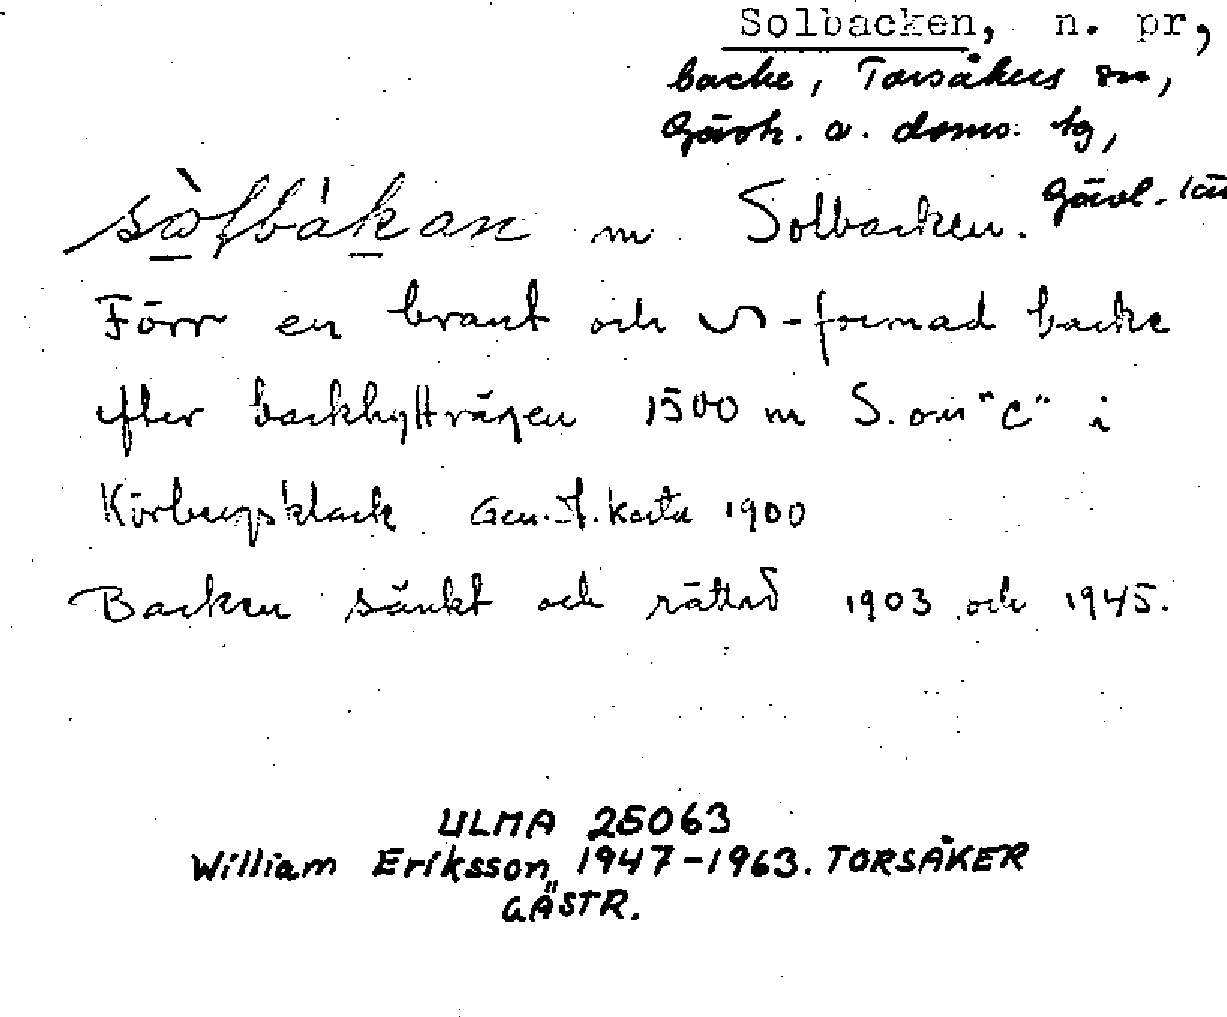 Solbacken, n. pr,
backe, Torsåkers sn,
Gästr. ö. doms. tg,
Gävl. län
sòlbákan m. Solbacken.
Förr en brant och ∽-formad backe
efter backhyttvägen 1500 m S. om "C" i
Körbergsklack Gen.st.karta 1900
Backen sänkt och rättad 1903 och 1945.
ULMA 25063
William Eriksson 1947-1963. TORSÅKER
GÄSTR.